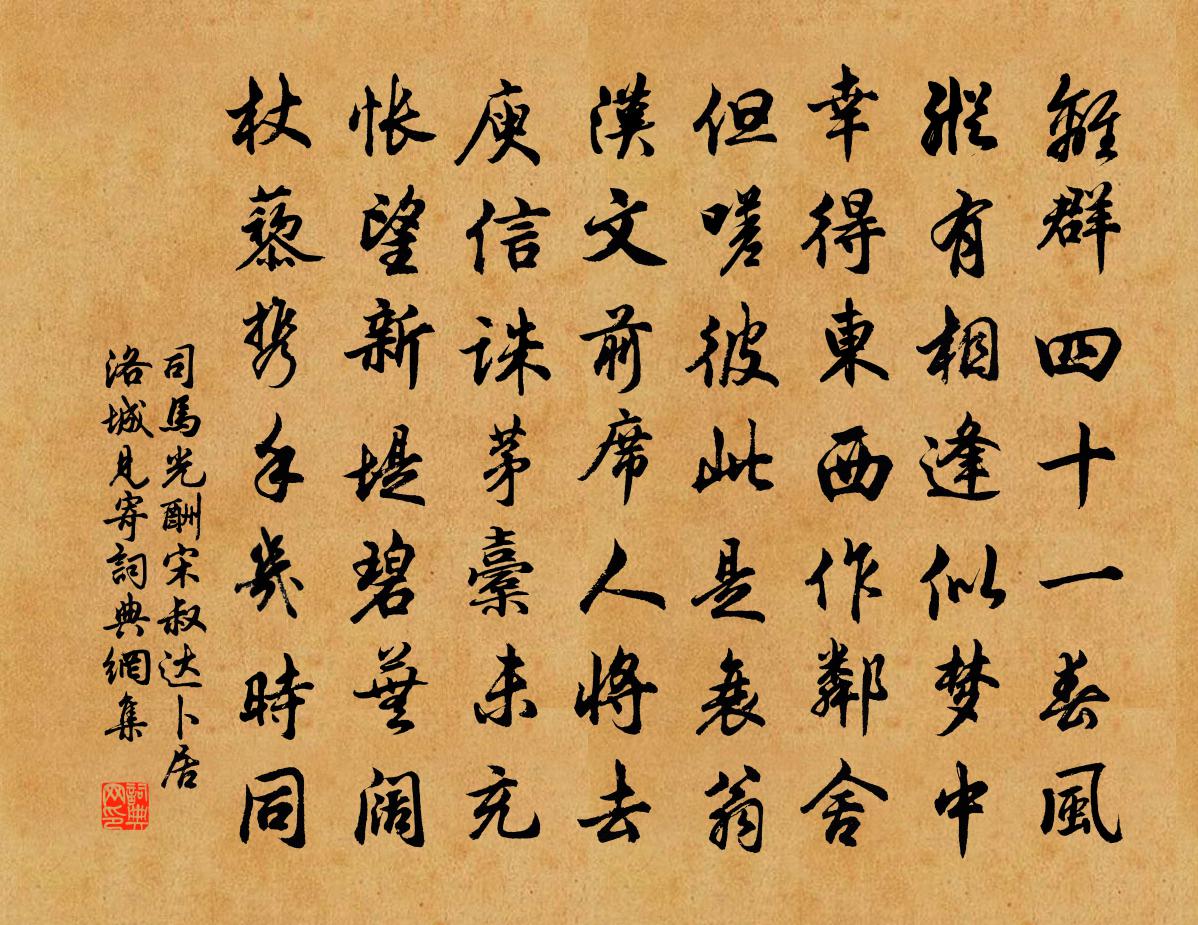 離群四十一春風
縱有相逢似梦中
幸得東西作鄰舍
但嗟彼此是衰翁
漢文前席人將去
庾信誅茅藳未充
悵望新堤碧蕪闊
杖藜携手幾時同
司馬光酬宋叔达卜居
洛城見寄詞典網集
詞典网印